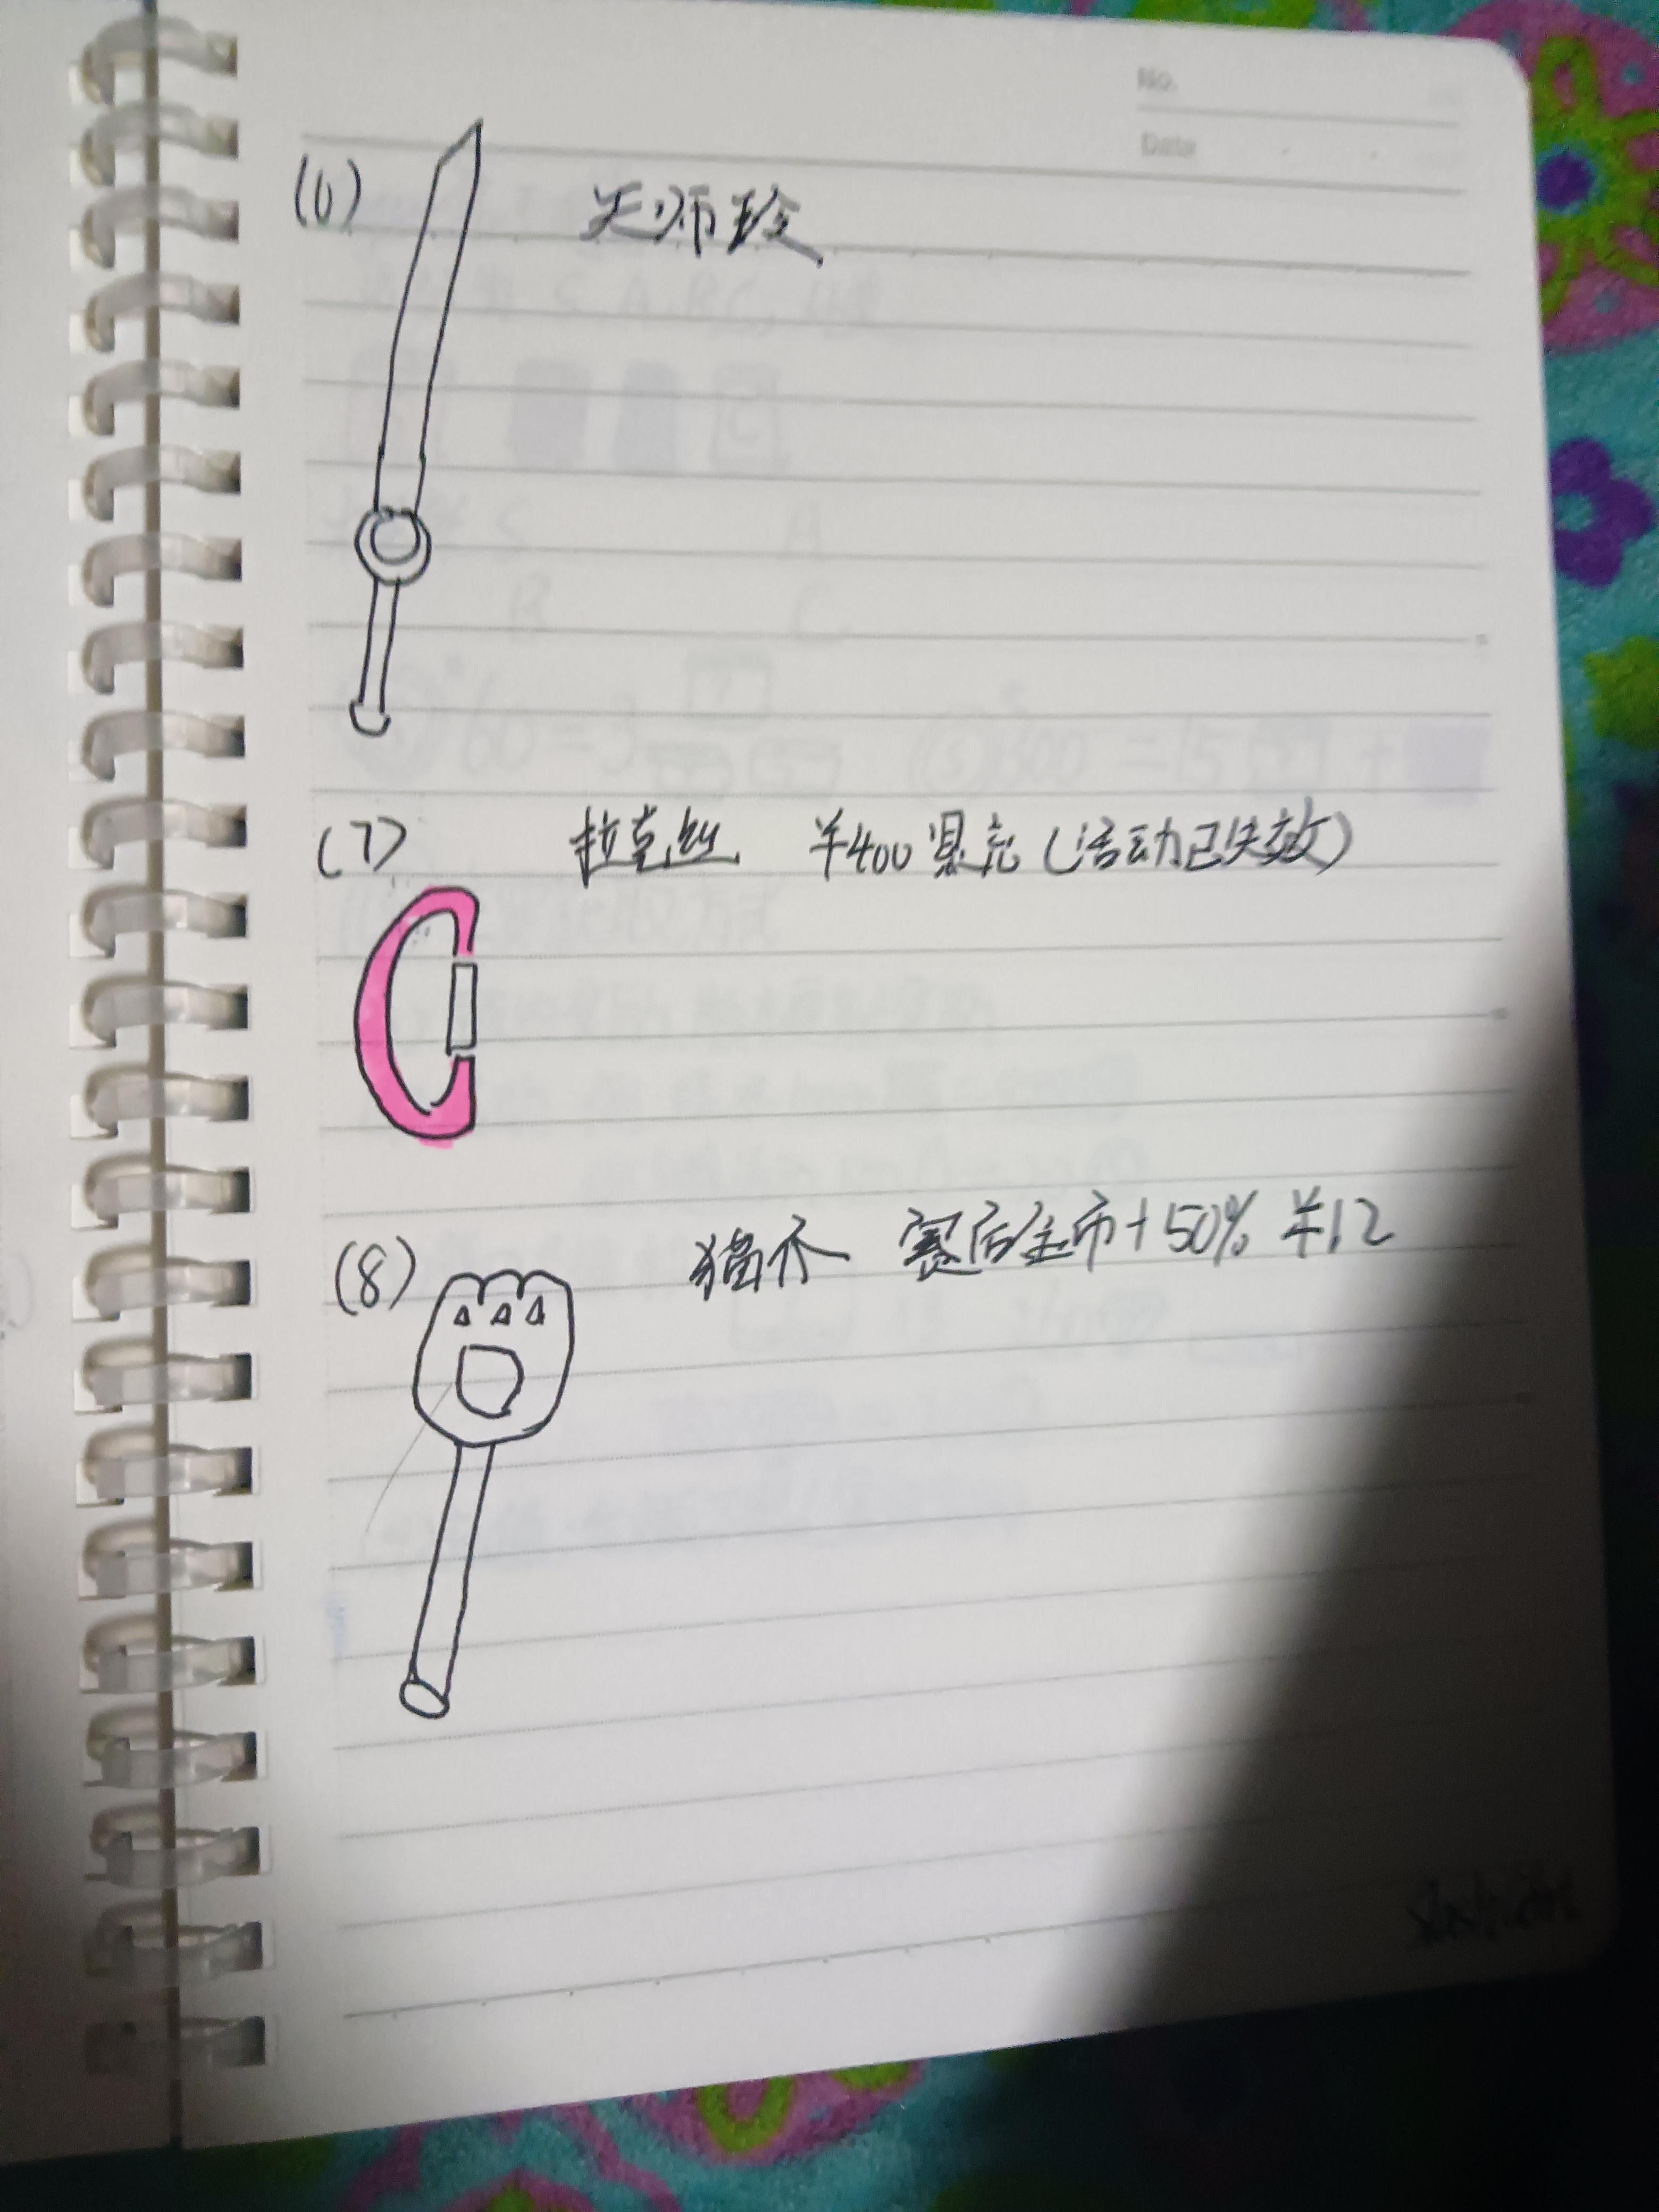 No.
Date
(6) 天师玲
(7) 拉克丝 ¥400累充(活动已失效)
(8) 猫爪 赛后金币+50% ¥12